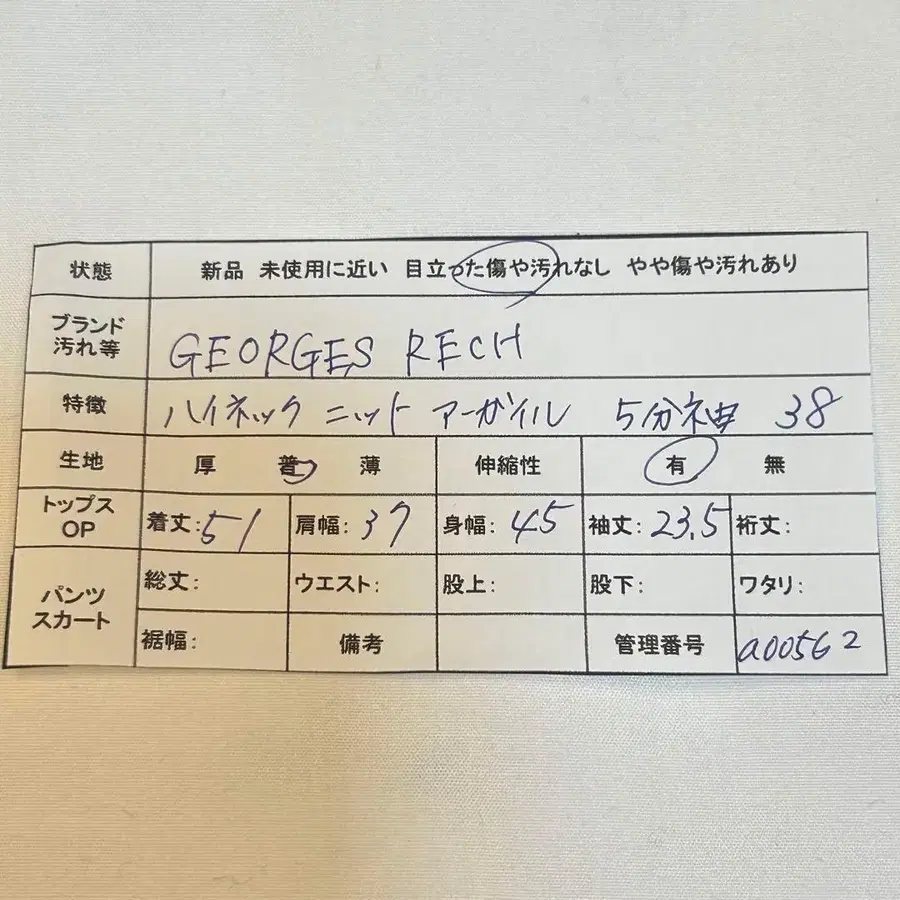 状態 新品 未使用に近い 目立った傷や汚れなし やや傷や汚れあり
ブランド
汚れ等 GEORGES RECH
特徴 ハイネック ニット アーガイル 5分袖 38
生地 厚 普 薄 伸縮性 有 無
トップス
OP 着丈:51 肩幅:37 身幅:45 袖丈:23.5 裄丈:
パンツ
スカート 総丈: ウエスト: 股上: 股下: ワタリ:
裾幅: 備考 管理番号 a00562